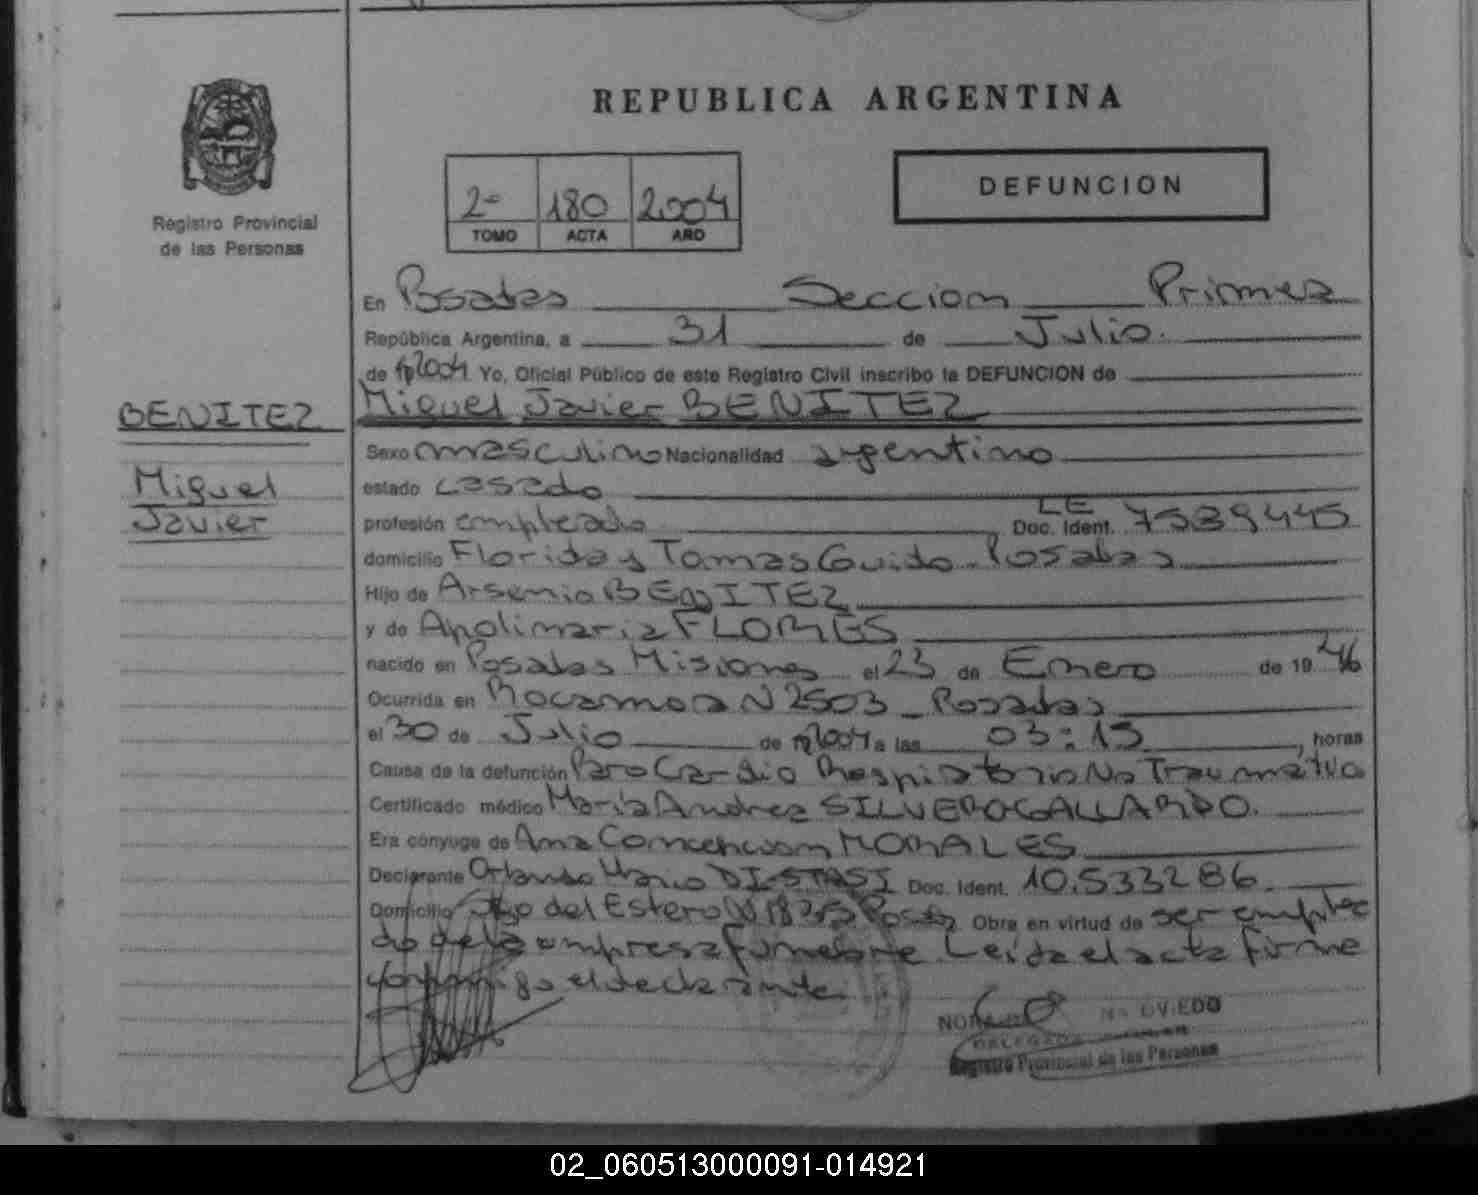 REPUBLICA ARGENTINA
Registro Provincial
de las Personas
2- 180 2.004
TOMO ACTA AÑO
DEFUNCION
En Posadas Seccion Primera
República Argentina, a 31 de Julio.
de 2004. Yo, Oficial Público de este Registro Civil inscribo la DEFUNCION de
BENITEZ
Miguel
Javier
Miguel Javier BENITEZ
Sexo masculino Nacionalidad argentino
estado casado
profesión empleado LE Doc. Ident. 7539445
domicilio Florida y Tomas Guido - Posadas
Hijo de Arsenio BENITEZ
y de Apolinaria FLORES
nacido en Posadas Misiones el 23 de Enero de 1946
Ocurrida en Rocamora N 2503 - Posadas
el 30 de Julio de 2004 a las 03:15, horas
Causa de la defunción Paro Cardio Respiratorio No Traumatico
Certificado médico María Andrea SILVERO GALLARDO.
Era cónyuge de Ana Concencion MORALES
Declarante Orlando Mario DI STASI Doc. Ident. 10.533286.
Domicilio Stgo del Estero N Posadas Obra en virtud de ser emplea
do de la empresa funebre. Leida el acta firme
conmigo el declarante.
NORA OVIEDO
DELEGADA
Registro Provincial de las Personas
02_060513000091-014921